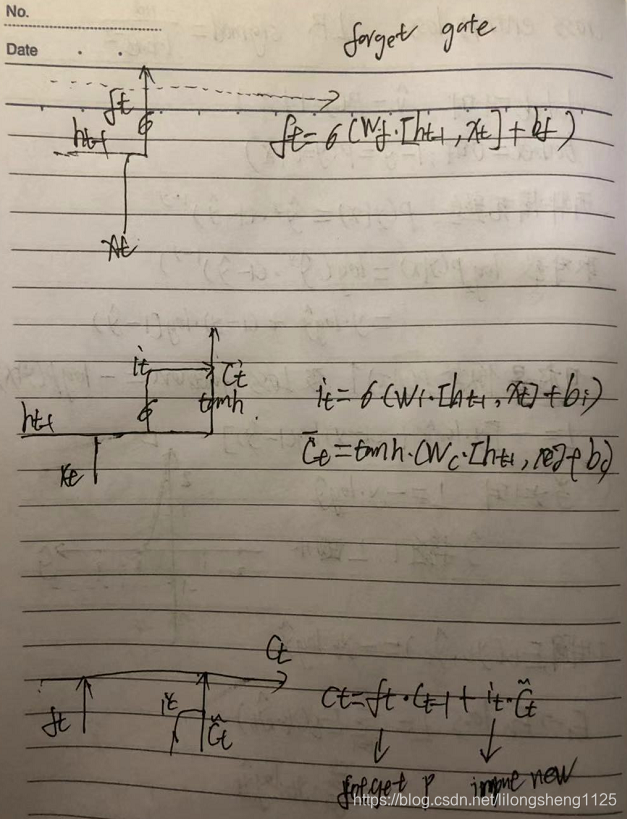 No.
Date . .
forget gate
ft
ht-1
xt
ft = σ(Wf·[ht-1, xt] + bf)
it
C̄t
σ
tanh
ht-1
xt
it = σ(Wi·[ht-1, xt] + bi)
C̄t = tanh·(Wc·[ht-1, xt] + bc)
Ct
ft
it
C̃t
Ct = ft·Ct-1 + it·C̃t
forget
new
https://blog.csdn.net/lilongsheng1125